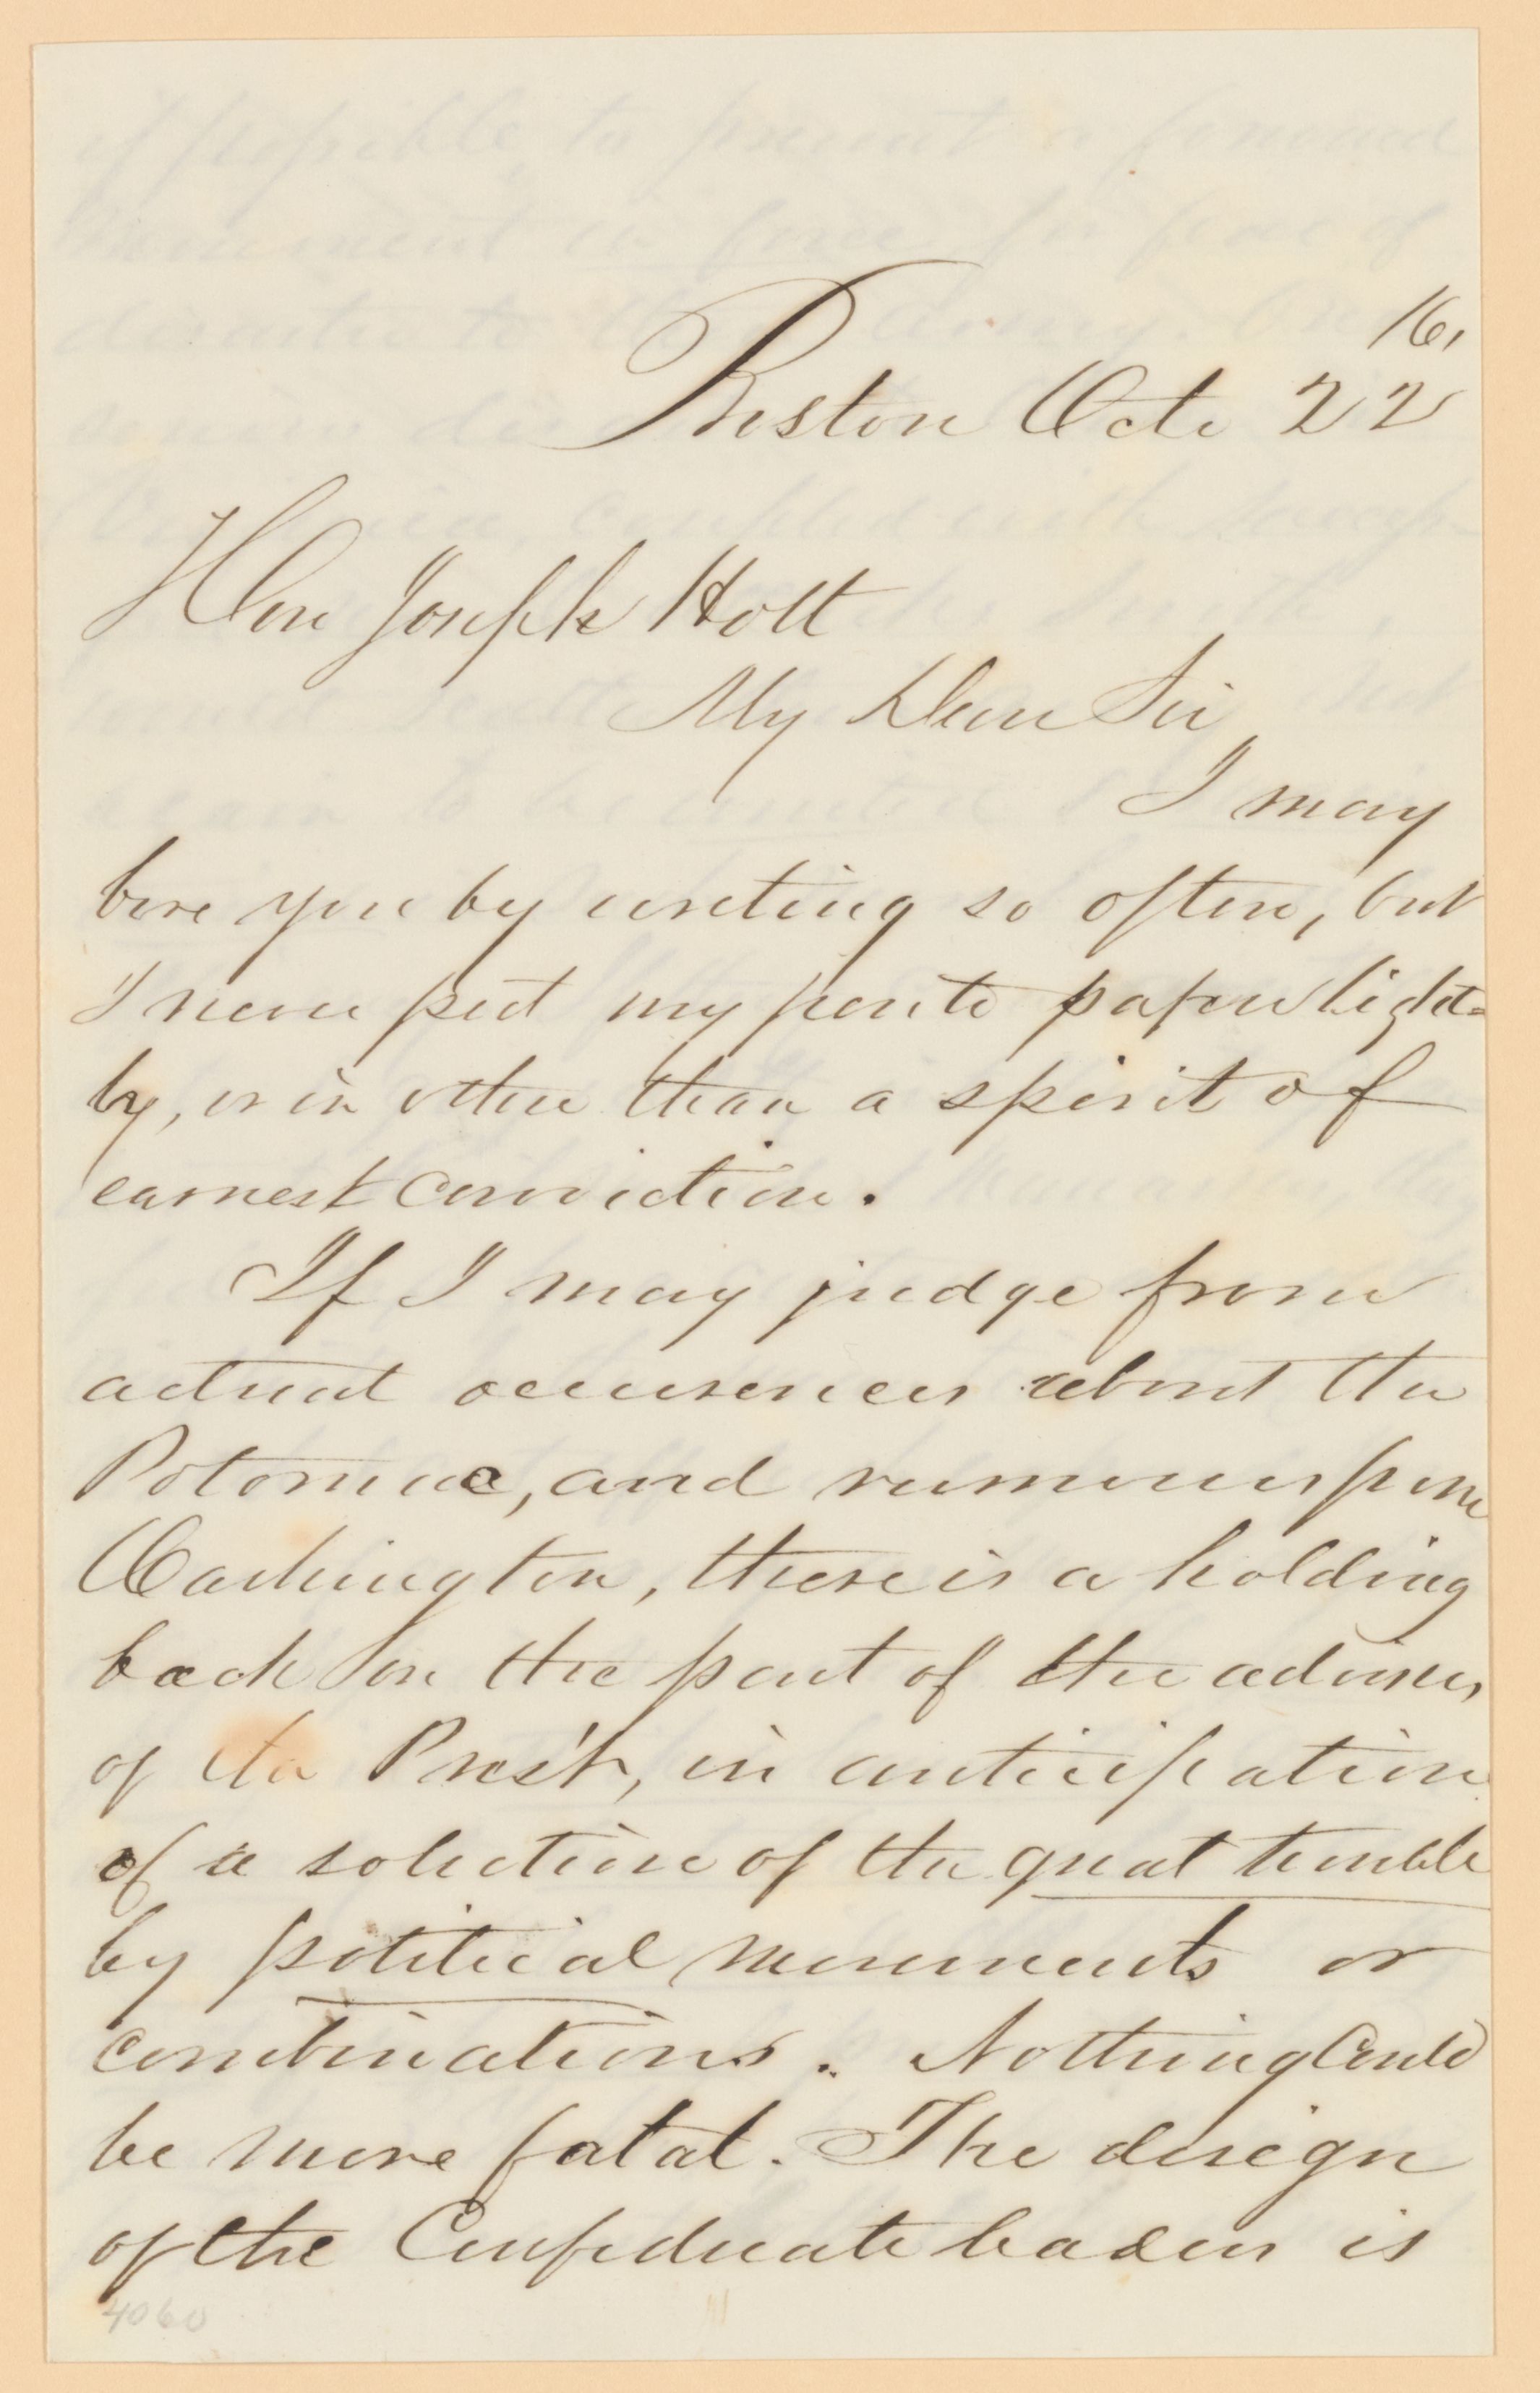 16,
Boston Octo 22
Hon Joseph Holt
My Dear Sir,
I may
bore you by writing so often, but
I never put my pen to paper light-
ly, or in other than a spirit of
earnest conviction.
If I may judge from
actual occurrences about the
Potomac, and rumours from
Washington, there is a holding
back on the part of the advisers
of the Pres't, in anticipation
of a solution of the great trouble
by political movements or
combinations. Nothing could
be more fatal. The design
of the Confederate leaders is
4060